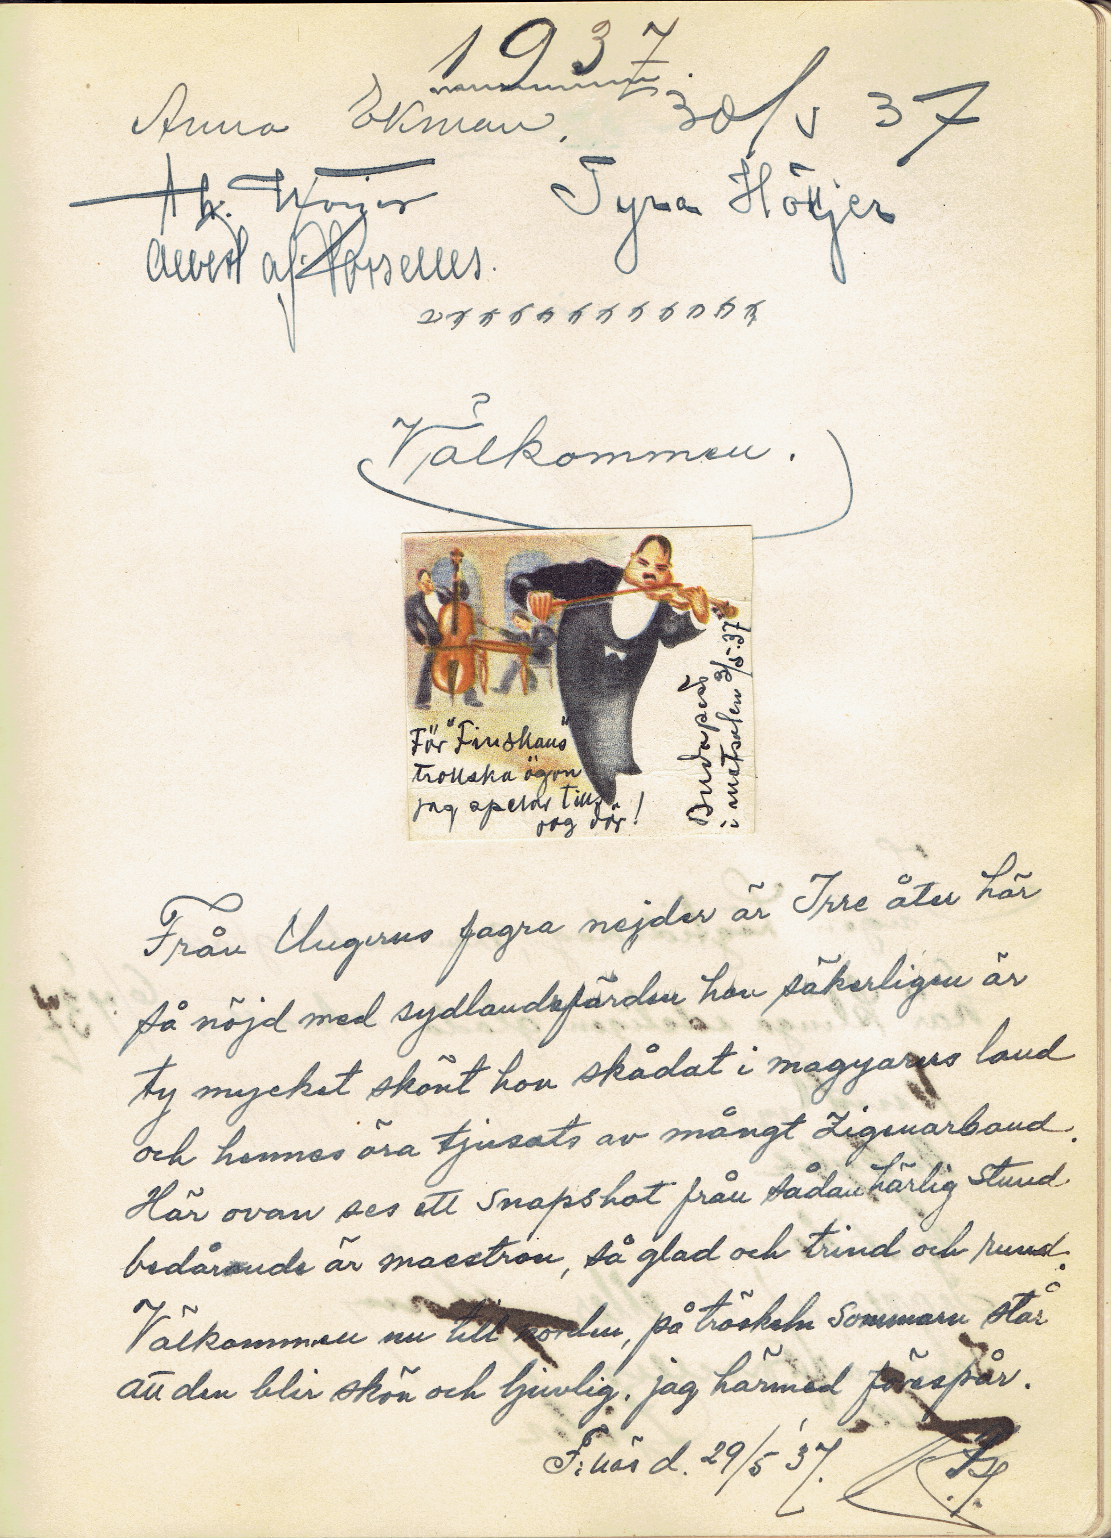 1937.
Anna Ekman. 30/5 37
Tyra Höijer
af Forselles.
Välkommen.
För "Finskans"
trollska ögon
jag spelar tills
jag dör!
Budapest
i matsalen 3/5-37
Från Ungerns fagra nejder är Irre åter här
så nöjd med sydlandsfärden hon säkerligen är
ty mycket skönt hon skådat i magyarens land
och hennes öra tjusats av mångt Zigenarband.
Här ovan ses ett snapshot från sådan härlig stund
bedårande är maestron, så glad och trind och rund.
Välkommen nu till norden, på tröskeln sommarn står
att den blir skön och ljuvlig. jag härmed förespår.
d. 29/5 '37.